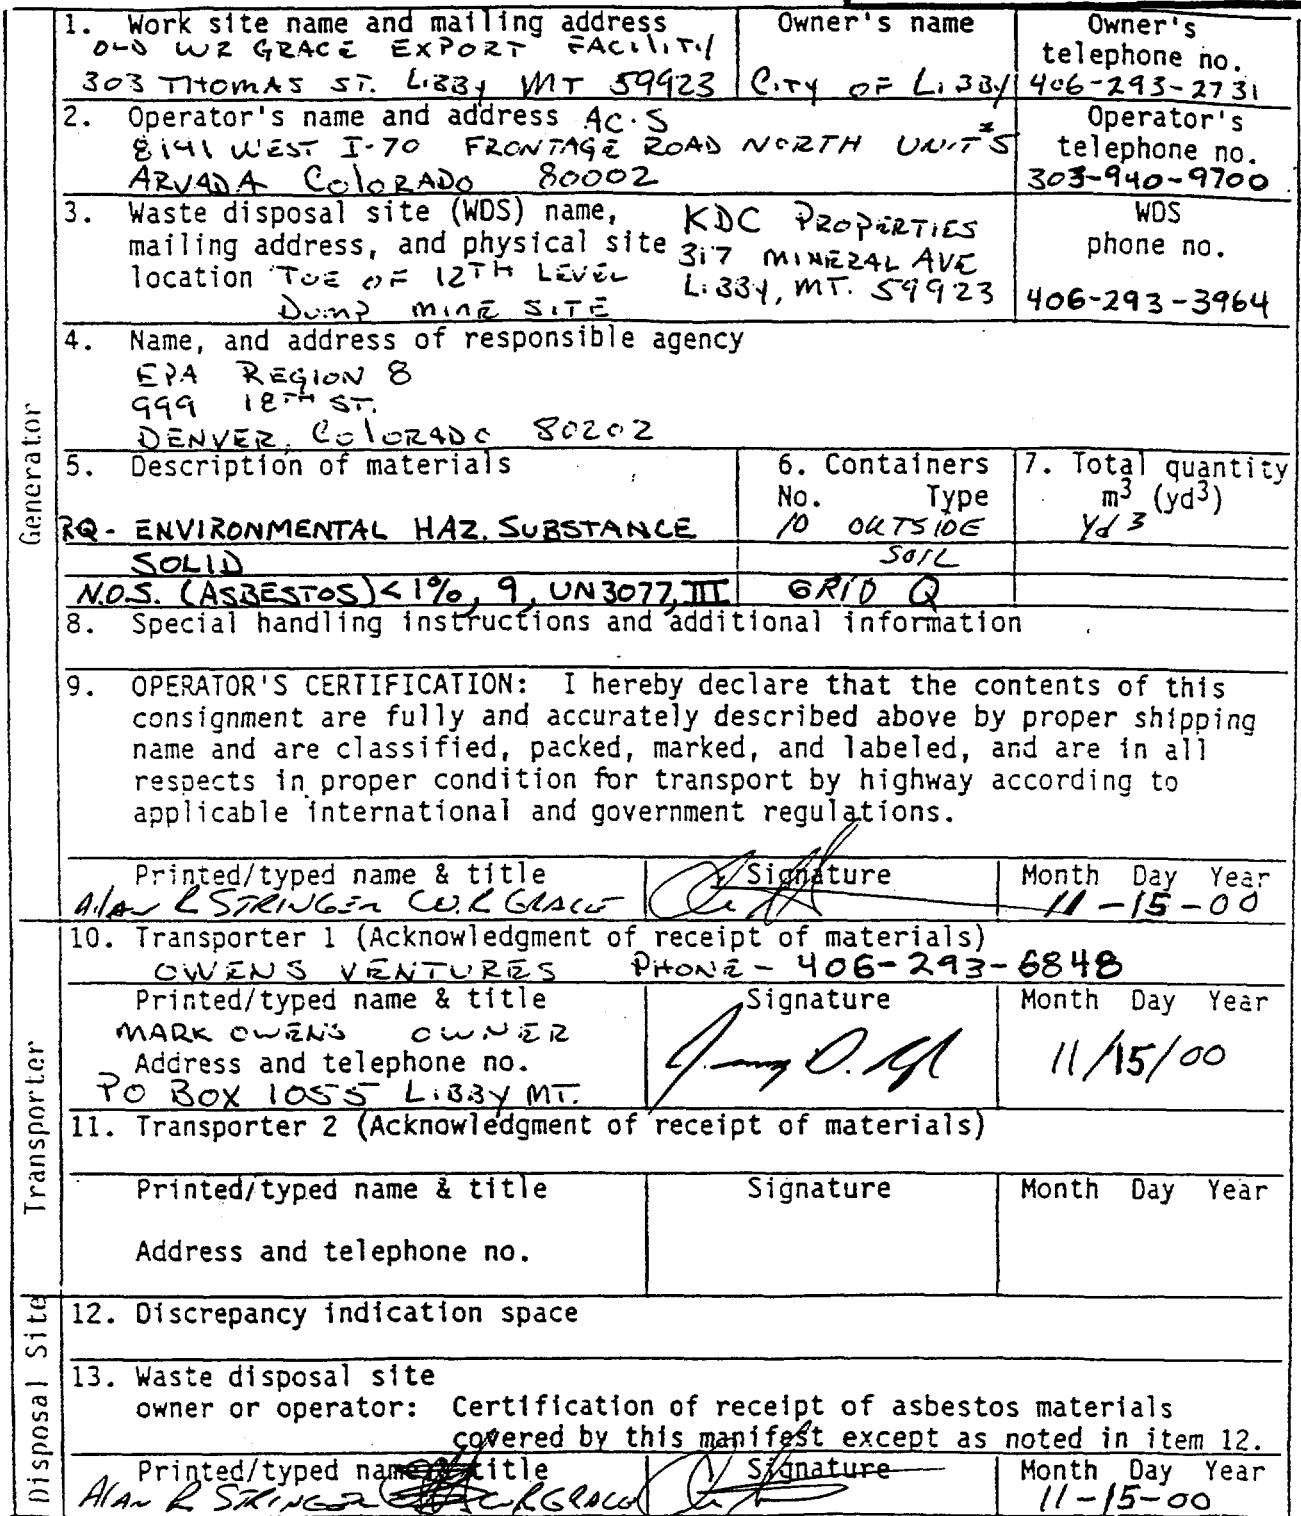 1. Work site name and mailing address
OLD WR GRACE EXPORT FACILITY
303 THOMAS ST. LIBBY MT 59923
Owner's name
CITY OF LIBBY
Owner's
telephone no.
406-293-2731
2. Operator's name and address AC·S
8141 WEST I-70 FRONTAGE ROAD NORTH UNIT #5
ARVADA COLORADO 80002
Operator's
telephone no.
303-940-9700
3. Waste disposal site (WDS) name,
mailing address, and physical site
location TOE OF 12TH LEVEL
DUMP MINE SITE
KDC PROPERTIES
317 MINERAL AVE
LIBBY, MT. 59923
WDS
phone no.
406-293-3964
4. Name, and address of responsible agency
EPA REGION 8
999 18TH ST.
DENVER, COLORADO 80202
5. Description of materials
6. Containers
No. Type
7. Total quantity
m3 (yd3)
RQ - ENVIRONMENTAL HAZ. SUBSTANCE
10 OUTSIDE
Yd 3
SOLID
SOIL
N.O.S. (ASBESTOS) < 1%, 9, UN3077, III
GRID Q
8. Special handling instructions and additional information
9. OPERATOR'S CERTIFICATION: I hereby declare that the contents of this
consignment are fully and accurately described above by proper shipping
name and are classified, packed, marked, and labeled, and are in all
respects in proper condition for transport by highway according to
applicable international and government regulations.
Printed/typed name & title
Alan R STRINGER W.R GRACE
Signature
Month Day Year
11-15-00
10. Transporter 1 (Acknowledgment of receipt of materials)
OWENS VENTURES PHONE - 406-293-6848
Printed/typed name & title
MARK OWENS OWNER
Address and telephone no.
PO BOX 1055 LIBBY MT.
Signature
Month Day Year
11/15/00
11. Transporter 2 (Acknowledgment of receipt of materials)
Printed/typed name & title
Signature
Month Day Year
Address and telephone no.
12. Discrepancy indication space
13. Waste disposal site
owner or operator: Certification of receipt of asbestos materials
covered by this manifest except as noted in item 12.
Printed/typed name & title
Alan R STRINGER WRGRACE
Signature
Month Day Year
11-15-00
Generator
Transporter
Disposal Site